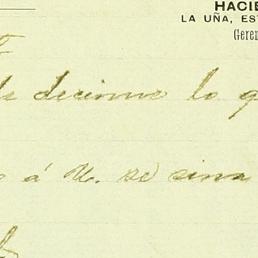 HACIE
LA UÑA, EST
Geren
decirme lo q
á U. se sirva